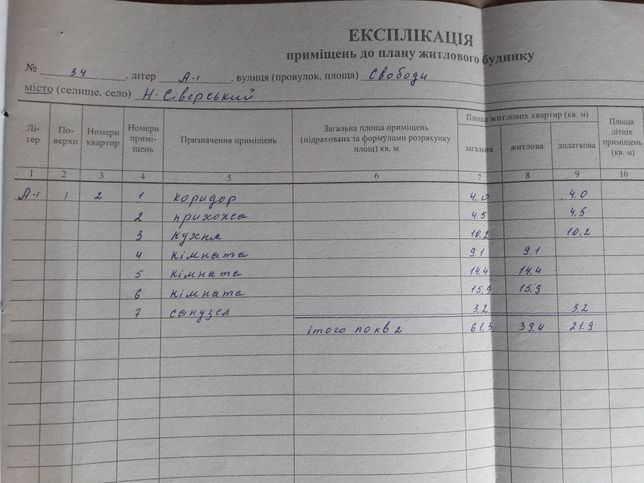 ЕКСПЛІКАЦІЯ
приміщень до плану житлового будинку
№ 34 , літер А-І , вулиця (провулок, площа) Свободи
місто (селище, село) Н-Сіверський
Лі-тер По-верхи Номери квартир Номери примі-щень Призначення приміщень Загальна площа приміщень (підрахована за формулами розрахунку площ) кв. м Площа житлових квартир (кв. м) загальна житлова додаткова Площа літніх приміщень (кв. м)
1 2 3 4 5 6 7 8 9 10
А-І 1 2 1 коридор 4.0 4.0
2 прихожа 4.5 4.5
3 кухня 10,2 10.2
4 кімната 9.1 9.1
5 кімната 14,4 14,4
6 кімната 15,9 15,9
7 санузел 3,2 3.2
ітого по кв 2 61,3 39,4 21.9